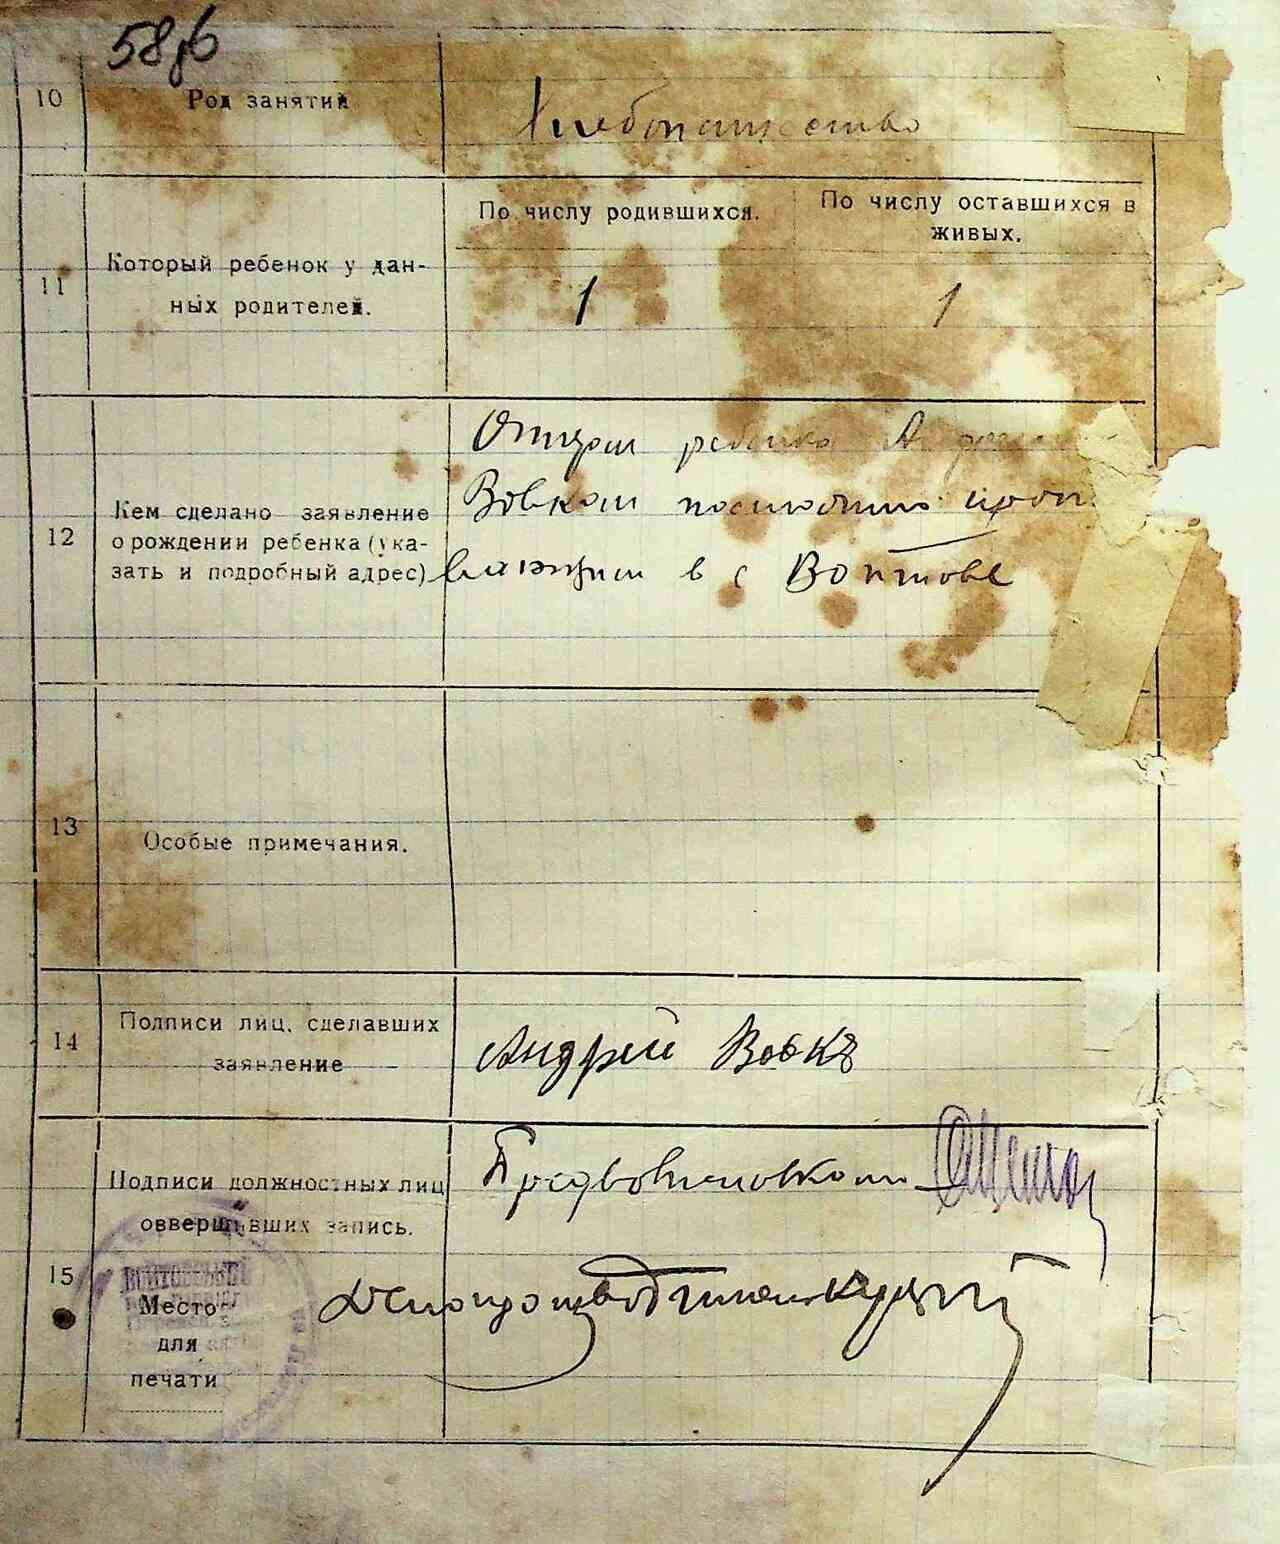 10
Род занятий
Хлебопашество
11
Который ребенок у дан-
ных родителей.
По числу родившихся.
1
По числу оставшихся в
живых.
1
12
Кем сделано заявление
о рождении ребенка (ука-
зать и подробный адрес)
Отцом ребенка Андреем
Вовком постоянно прож
в с Войтове
13
Особые примечания.
14
Подписи лиц, сделавших
заявление
Андрей Вовкъ
15
Подписи должностных лиц
овверщивших запись.
Место
для
печати